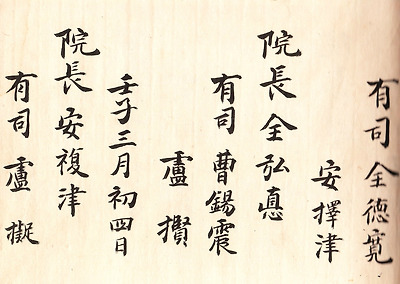 有司 全德寬
安擇津
院長 全弘悳
有司 曹錫震
盧攢
壬子三月初四日
院長 安複津
有司 盧擬